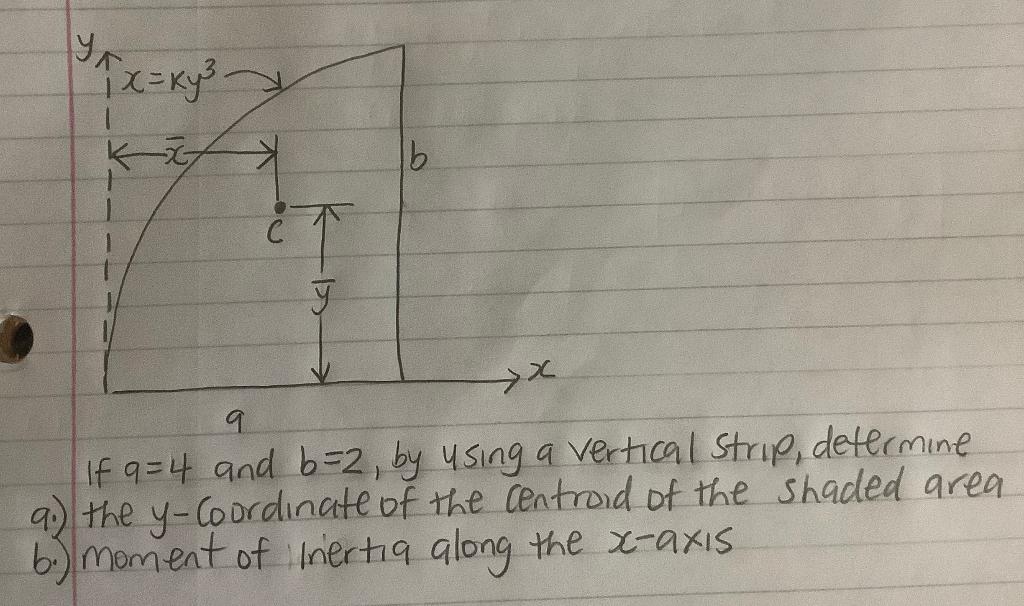 y
x=Ky³
x̄
b
C
ȳ
x
a
If a=4 and b=2, by using a vertical strip, determine
a.) the y-Coordinate of the Centroid of the shaded area
b.) moment of Inertia along the x-axis